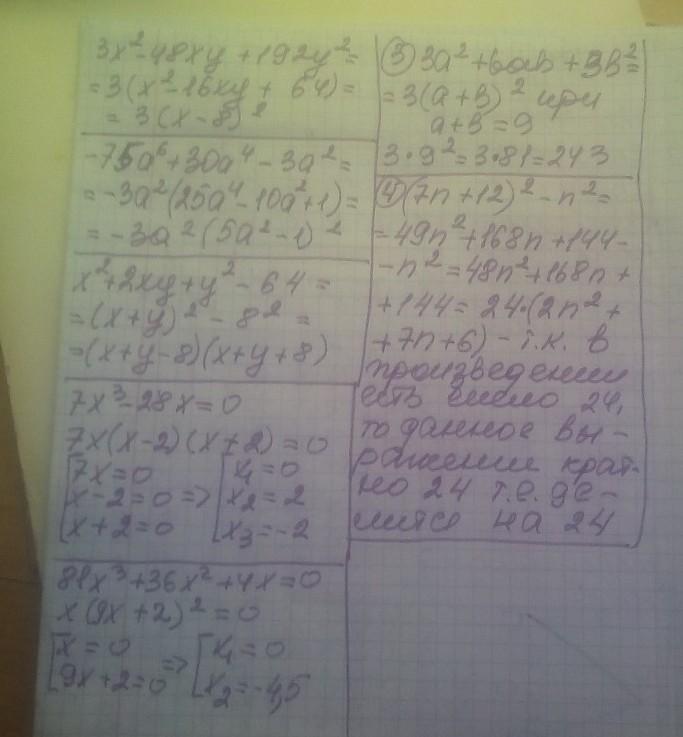 3x² - 48xy + 192y² =
= 3(x² - 16xy + 64) =
= 3(x - 8)²
- 75a⁶ + 30a⁴ - 3a² =
= -3a²(25a⁴ - 10a² + 1) =
= -3a²(5a² - 1)²
x² + 2xy + y² - 64 =
= (x + y)² - 8² =
= (x + y - 8)(x + y + 8)
7x³ - 28x = 0
7x(x - 2)(x + 2) = 0
[7x = 0 [x₁ = 0
[x - 2 = 0 => [x₂ = 2
[x + 2 = 0 [x₃ = -2
81x³ + 36x² + 4x = 0
x(9x + 2)² = 0
[x = 0 => [x₁ = 0
[9x + 2 = 0 [x₂ = -4,5
③ 3a² + 6ab + 3b² =
= 3(a + b)² при
a + b = 9
3·9² = 3·81 = 243
④ (7n + 12)² - n² =
= 49n² + 168n + 144 -
- n² = 48n² + 168n +
+ 144 = 24·(2n² +
+ 7n + 6) - т.к. в
произведении
есть число 24,
то данное вы-
ражении крат-
но 24 т.е. де-
лится на 24